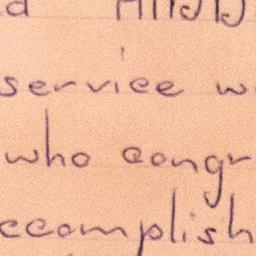 service w
who congr
ccomplish